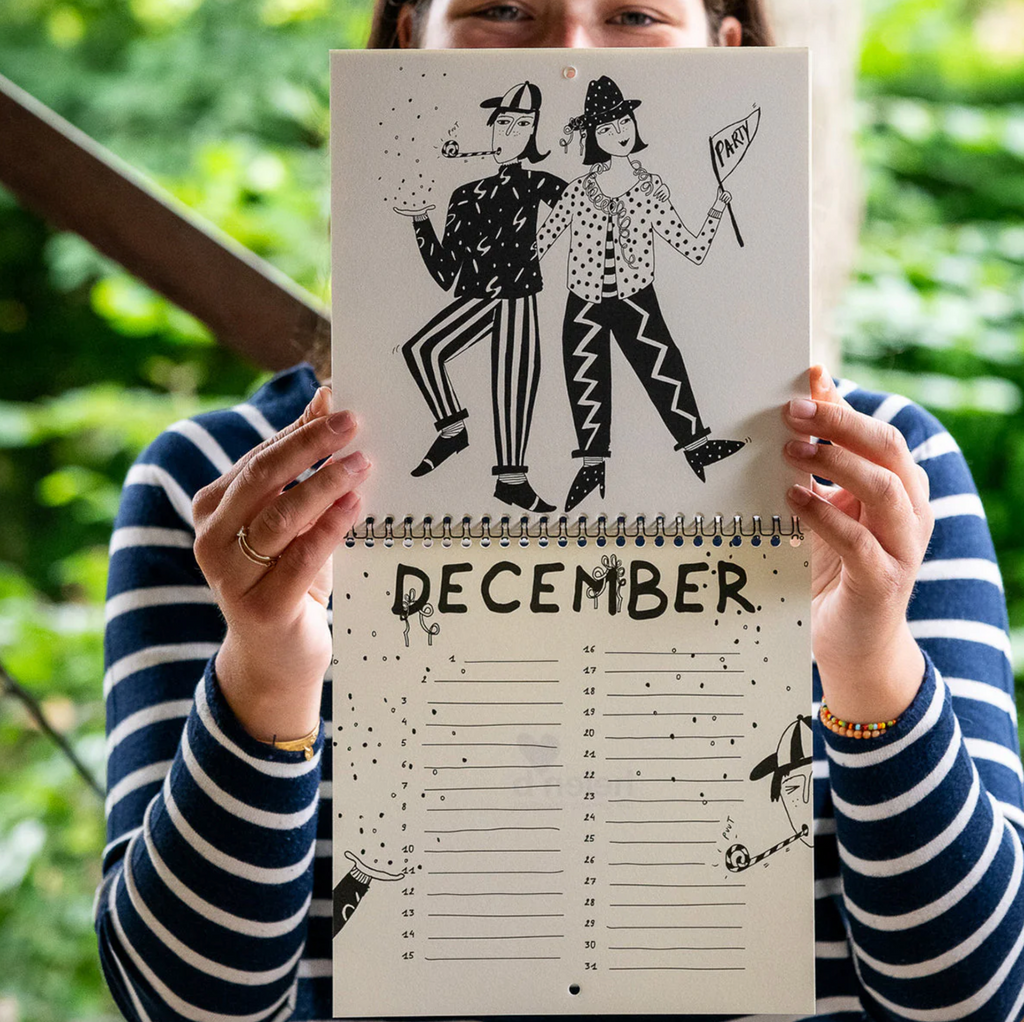 PUT
PARTY
DECEMBER
1
2
3
4
5
6
7
8
9
10
11
12
13
14
15
16
17
18
19
20
21
22
23
24
25
26
27
28
29
30
31